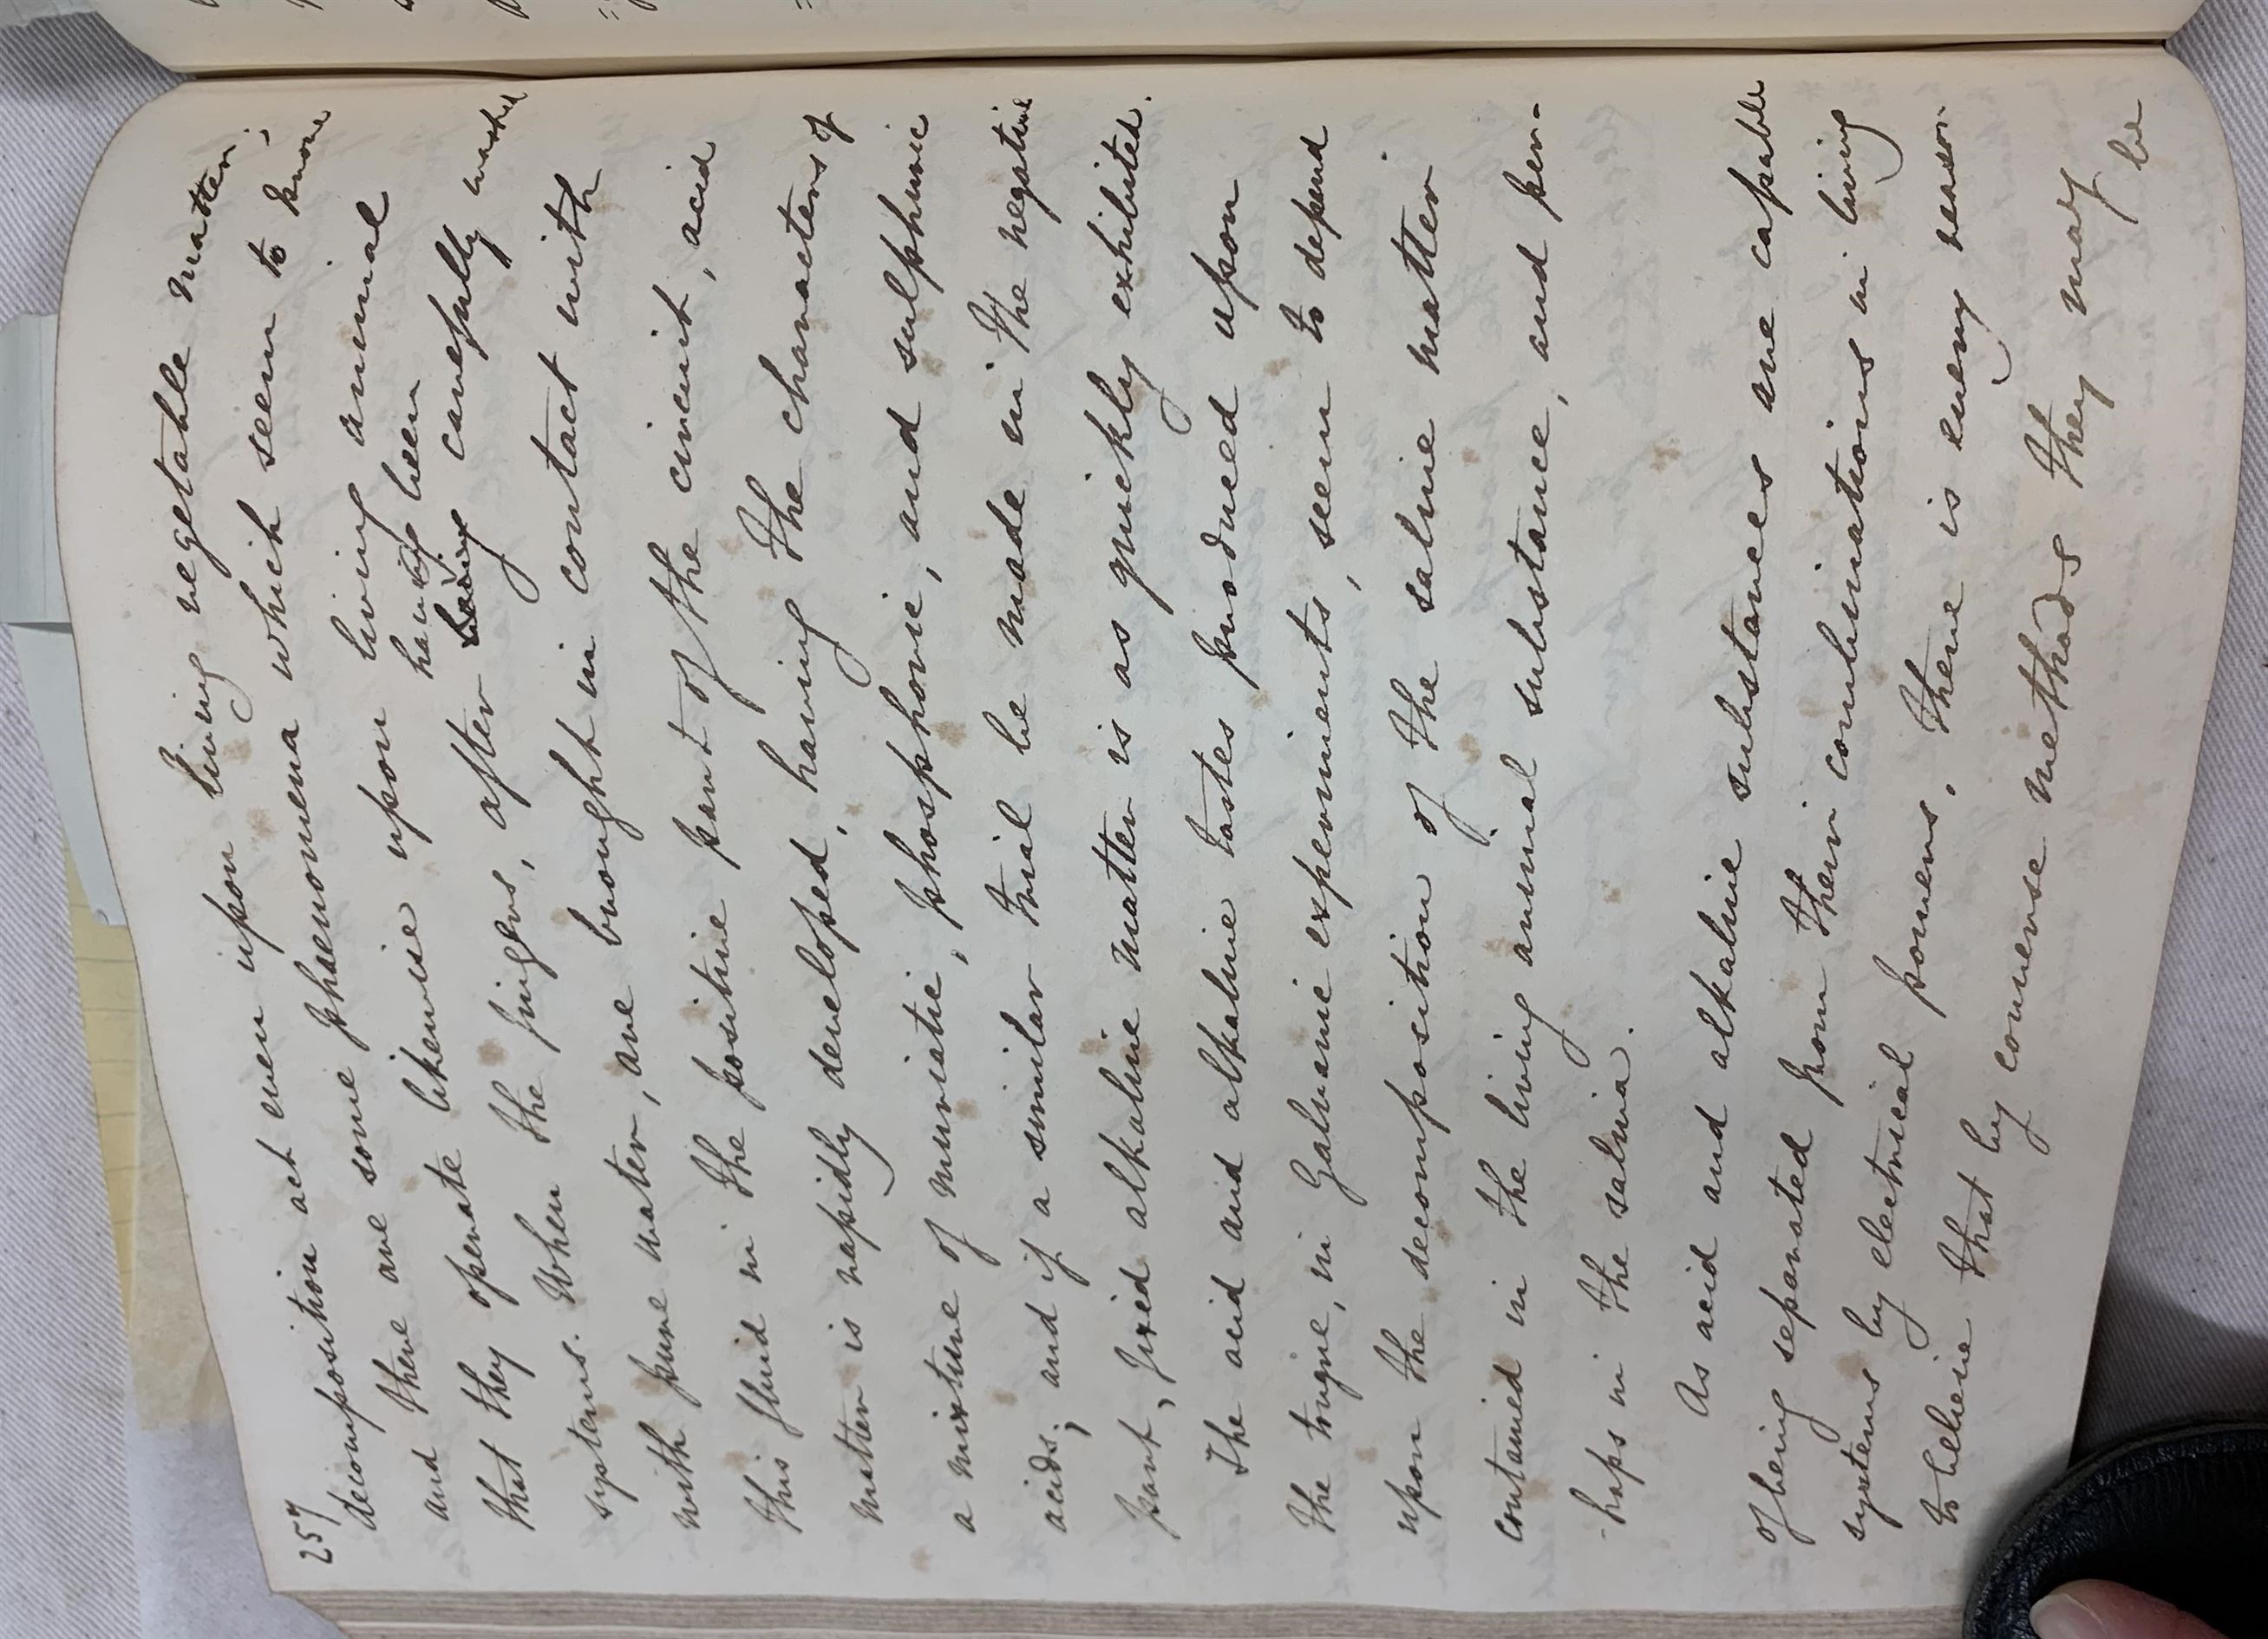 257
decomposition act even upon living vegetable matter;
and there are some phaenomena which seem to prove
that they operate likewise upon living animal
systems. When the fingers, after having been carefully washed
with pure water, are brought in contact with
this fluid in the positive part of the circuit, acid
matter is rapidly developed, having the characters of
a mixture of muriatic, phosphoric, and sulphuric
acids; and if a similar trial be made in the negative
part, fixed alkaline matter is as quickly exhibited.
The acid and alkaline tastes produced upon
the tongue, in Galvanic experiments, seem to depend
upon the decomposition of the saline matter
contained in the living animal substance, and per-
-haps in the saliva.
As acid and alkaline substances are capable
of being separated from their combinations in living
systems by electrical powers, there is every reason
to believe that by converse methods they may be